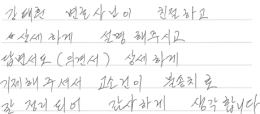 강배원 변호사님이 친절하고
상세하게 설명해주시고
답변서도(의견서) 상세하게
기재해주셔서 고소건이 불송치로
잘 정리되어 감사하게 생각합니다